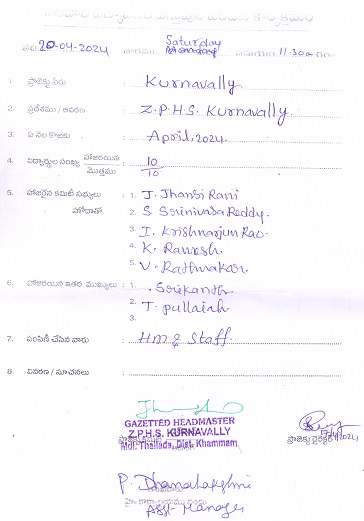 తేది 20-04-2024 వారము Saturday సమయం 11-30 గం.
1. ప్రాజెక్టు పేరు : Kurnavally
2. ప్రదేశము / ఆవరణ : Z.P.H.S. Kurnavally
3. ఏ నెల కొఱకు : April, 2024.
4. విద్యార్థుల సంఖ్య హాజరయిన / మొత్తము : 10 / 10
5. హాజరైన కమిటీ సభ్యులు : 1. J. Jhansi Rani
హోదాతో 2. S Srinivasa Reddy.
3. I. Krishnarjun Rao.
4. K. Ramesh.
5. V. Rathnakar.
6. హాజరయిన ఇతర ముఖ్యులు : 1. Srikanth
2. T. pullaiah
3.
7. పంపిణీ చేసిన వారు : HM & Staff.
8. వివరణ / సూచనలు :
GAZETTED HEADMASTER
Z.P.H.S. KURNAVALLY
Mdl. Thallada, Dist. Khammam
ప్రాజెక్టు డైరెక్టర్
P. Dhanalakshmi
Asst. Manager